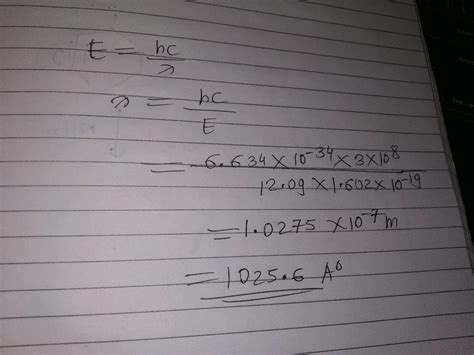 E = hc/λ
λ = hc/E
= 6.634 × 10⁻³⁴ × 3×10⁸ / 12.09 × 1.602 × 10⁻¹⁹
= 1.0275 × 10⁻⁷ m
= 1025.6 A⁰